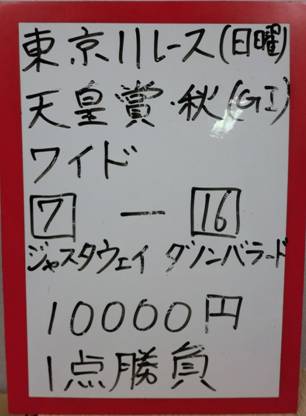 東京11レース(日曜)
天皇賞・秋(GI)
ワイド
7 ― 16
ジャスタウェイ ダノンバラード
10000円
1点勝負